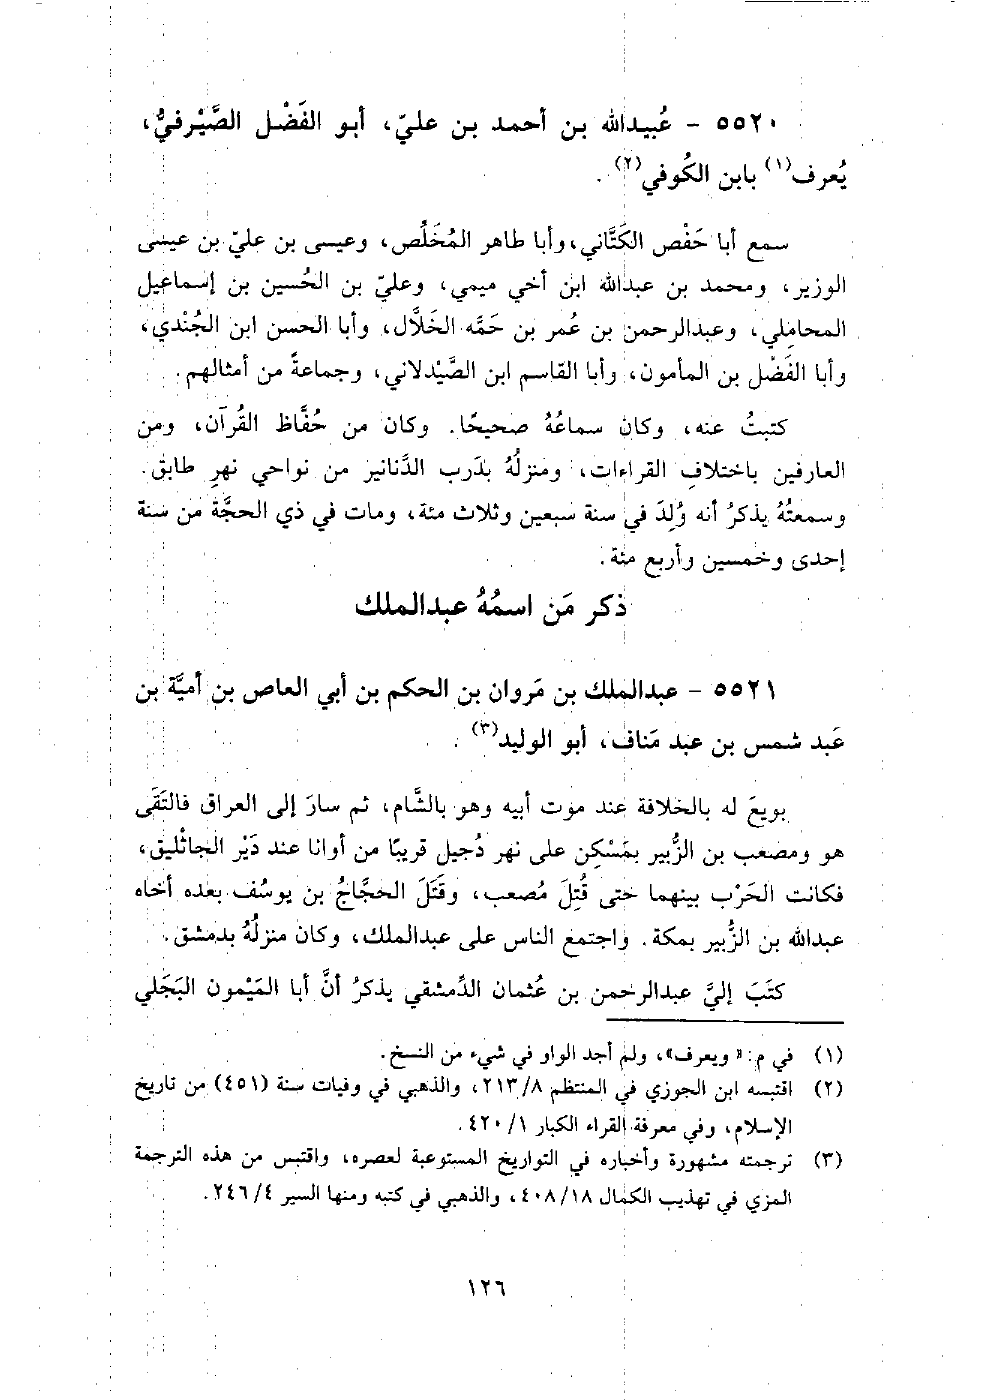 ٥٥٢٠ - عُبيدالله بن أحمد بن عليّ، أبو الفَضْل الصَّيْرفيُّ،
يُعرف(١) بابن الكُوفي(٢).
سمع أبا حَفْص الكَتَّاني، وأبا طاهر المُخَلِّص، وعيسى بن عليّ بن عيسى
الوزير، ومحمد بن عبدالله ابن أخي ميمي، وعليّ بن الحُسين بن إسماعيل
المحامِلي، وعبدالرحمن بن عُمر بن حَمَّه الخَلَّال، وأبا الحسن ابن الجُنْدي،
وأبا الفَضْل بن المأمون، وأبا القاسم ابن الصَّيْدلاني، وجماعةً من أمثالهم.
كتبتُ عنه، وكان سماعُهُ صحيحًا. وكان من حُفَّاظ القُرآن، ومن
العارفين باختلافِ القراءات، ومنزلُهُ بدَرب الدَّنانير من نواحي نهرِ طابق.
وسمعتُهُ يذكرُ أنه وُلِدَ في سنة سبعين وثلاث مئة، ومات في ذي الحجَّة من سنة
إحدى وخمسين وأربع مئة.
ذكر مَن اسمُهُ عبدالملك
٥٥٢١ - عبدالملك بن مَروان بن الحكم بن أبي العاص بن أميَّة بن
عَبد شمس بن عبد مَناف، أبو الوليد(٣).
بويعَ له بالخلافة عند موت أبيه وهو بالشَّام، ثم سارَ إلى العراق فالتَقَى
هو ومصعب بن الزُّبير بمَسْكِن على نهر دُجيل قريبًا من أوانا عند دَيْر الجاثْليق،
فكانت الحَرْب بينهما حتى قُتِلَ مُصعب، وقَتَلَ الحجَّاجُ بن يوسُف بعده أخاه
عبدالله بن الزُّبير بمكة. واجتمع الناس على عبدالملك، وكان منزلُهُ بدمشق.
كتَبَ إليَّ عبدالرحمن بن عُثمان الدِّمشقي يذكرُ أنَّ أبا المَيْمون البَجَلي
(١) في م: «ويعرف»، ولم أجد الواو في شيء من النسخ.
(٢) اقتبسه ابن الجوزي في المنتظم ٢١٣/٨، والذهبي في وفيات سنة (٤٥١) من تاريخ
الإسلام، وفي معرفة القراء الكبار ٤٢٠/١.
(٣) ترجمته مشهورة وأخباره في التواريخ المستوعبة لعصره، واقتبس من هذه الترجمة
المزي في تهذيب الكمال ٤٠٨/١٨، والذهبي في كتبه ومنها السير ٢٤٦/٤.
١٢٦